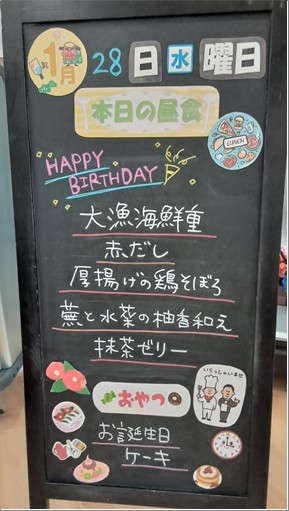 1月 28日水曜日
本日の昼食
LUNCH
HAPPY
BIRTHDAY
大漁海鮮重
赤だし
厚揚げの鶏そぼろ
蕪と水菜の柚香和え
抹茶ゼリー
いらっしゃいませ
おやつ
お誕生日
ケーキ